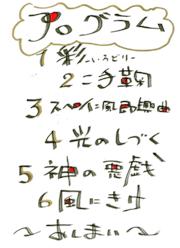 プログラム
1 彩〜いろどり〜
2 二手鞠
3 スペイン風民謡曲
4 光のしづく
5 神の悪戯
6 風にきけ
〜おしまい〜